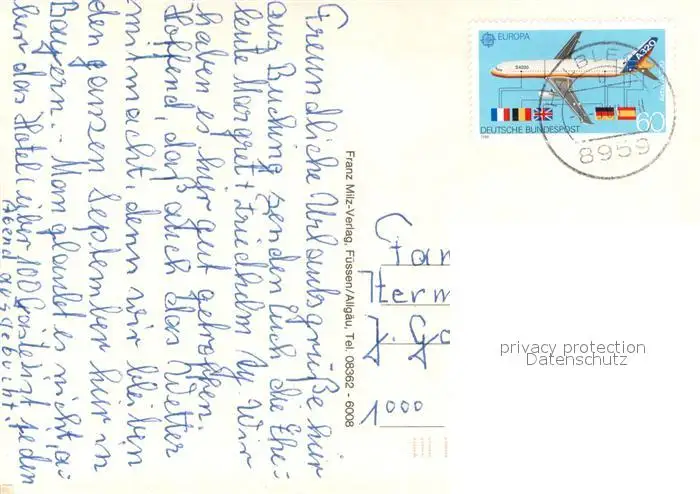 Freundliche Urlaubsgrüße hier
aus Buching senden Euch die Ehe-
leute Margret + Friedhelm Wir
haben es hier gut getroffen.
Hoffend, daß auch das Wetter
mitmacht, denn wir bleiben
den ganzen September hier in
Bayern. - Man glaubt es nicht, a-
ber das Hotel über 100 ist jeden
Abend ausgebucht.
Franz Milz-Verlag, Füssen/Allgäu, Tel. 08362 - 6008
EUROPA
A320
DEUTSCHE BUNDESPOST
60
8959
Fam
Herm
J. Ga
1000
privacy protection
Datenschutz